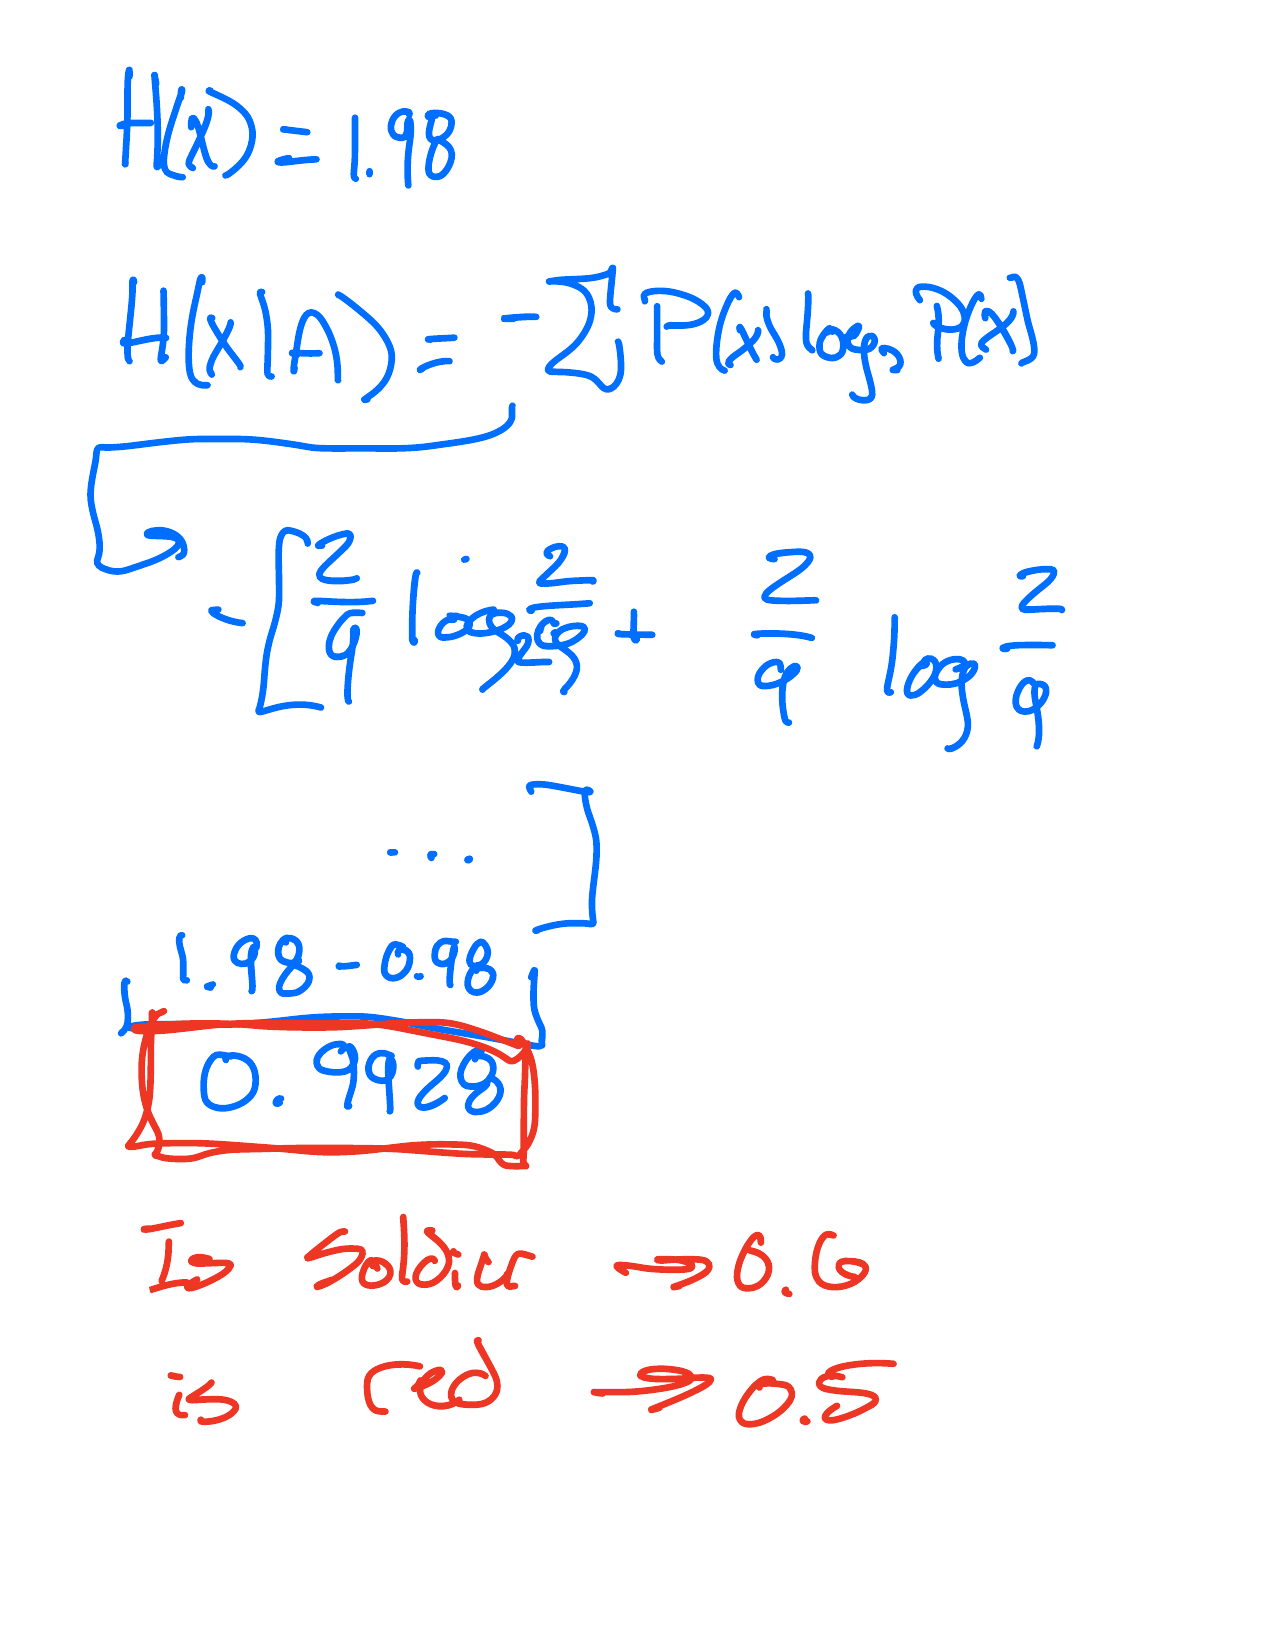 H(x) = 1.98
H(x|A) = -∑ P(x) log₂ P(x)
-[2/9 log₂ 2/9 + 2/9 log 2/9
... ]
1.98 - 0.98
0.9928
Is Soldier → 0.6
is red → 0.5